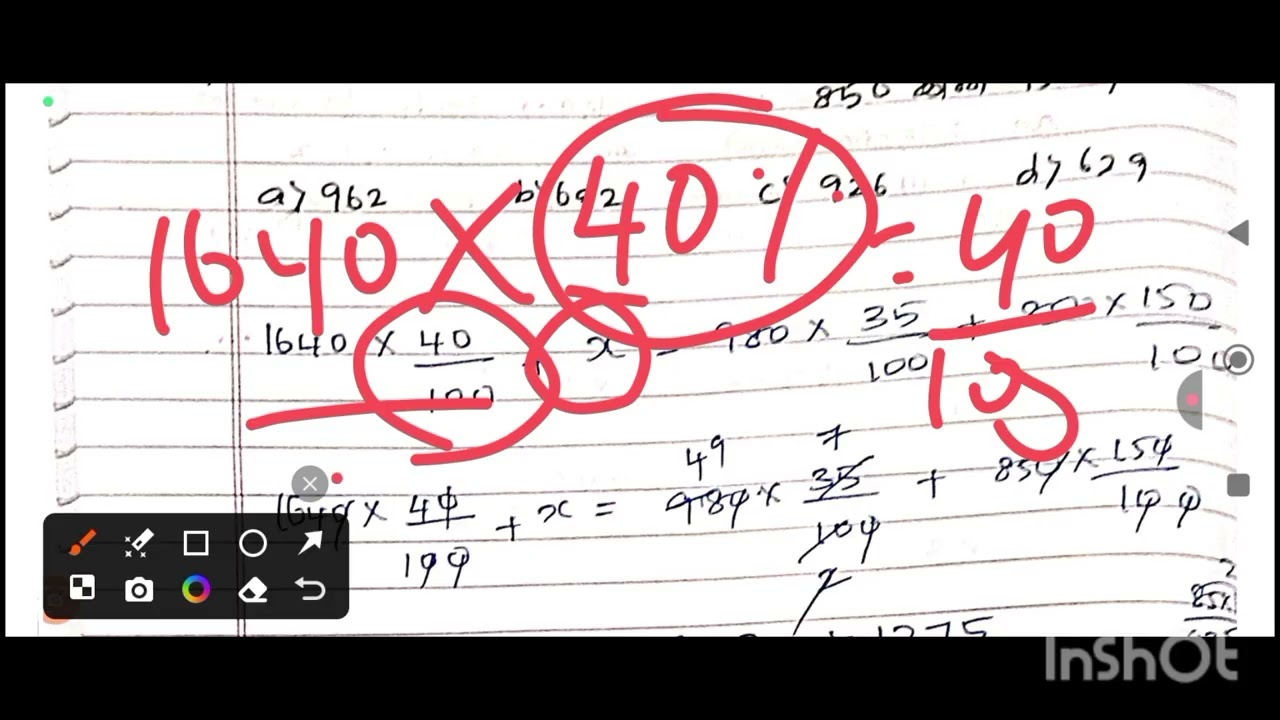 850
a) 962 b) 692 c) 926 d) 629
1640 X 40% = 40/100
1640 × 40/100 + x = 980 × 35/100 + × 150/100
49 7
1640 × 40/100 + x = 980 × 35/100 + 850 × 150/100
2
2
+ 1275
InShOt